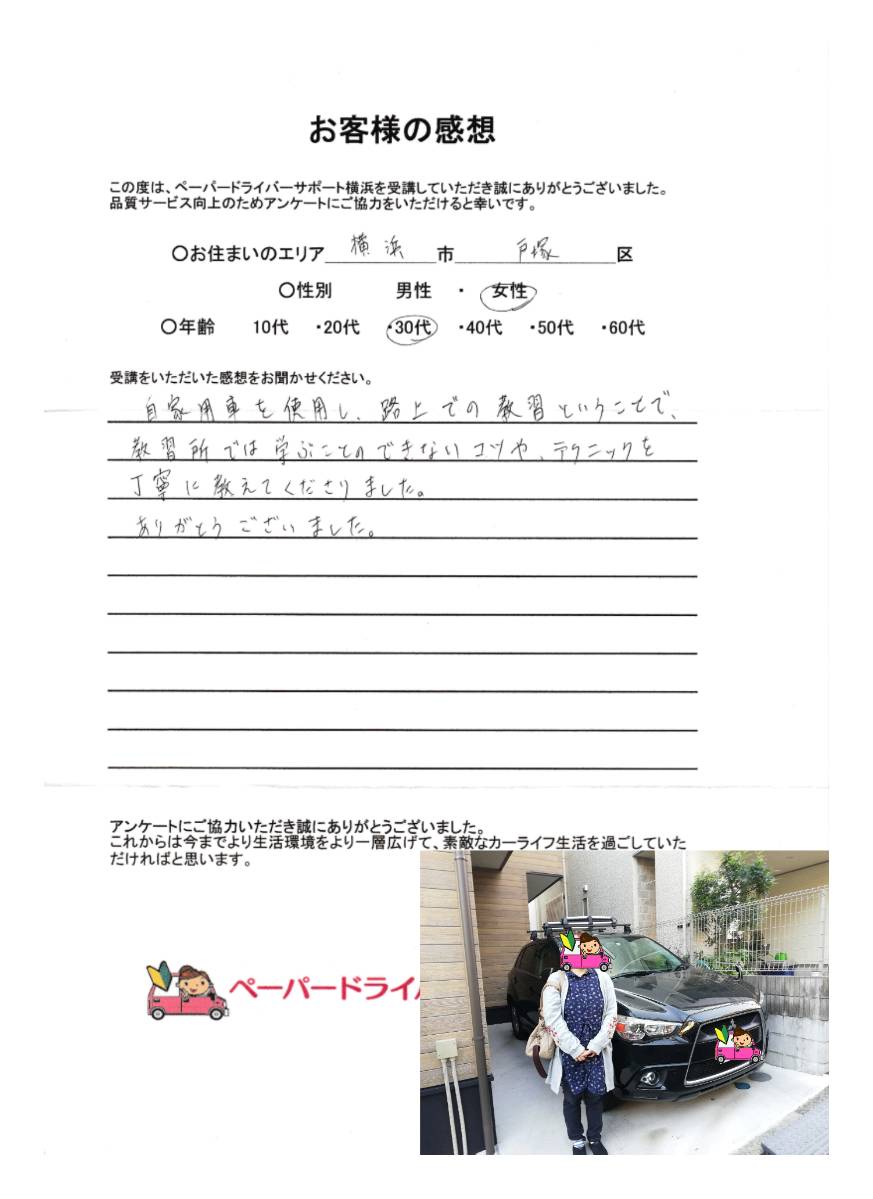 お客様の感想
この度は、ペーパードライバーサポート横浜を受講していただき誠にありがとうございました。
品質サービス向上のためアンケートにご協力をいただけると幸いです。
〇お住まいのエリア 横浜 市 戸塚 区
〇性別 男性 ・ 女性
〇年齢 10代 ・20代 ・30代 ・40代 ・50代 ・60代
受講をいただいた感想をお聞かせください。
自家用車を使用し、路上での教習ということで、
教習所では学ぶことのできないコツや、テクニックを
丁寧に教えてくださりました。
ありがとうございました。
アンケートにご協力いただき誠にありがとうございました。
これからは今までより生活環境をより一層広げて、素敵なカーライフ生活を過ごしていた
だければと思います。
ペーパードライ